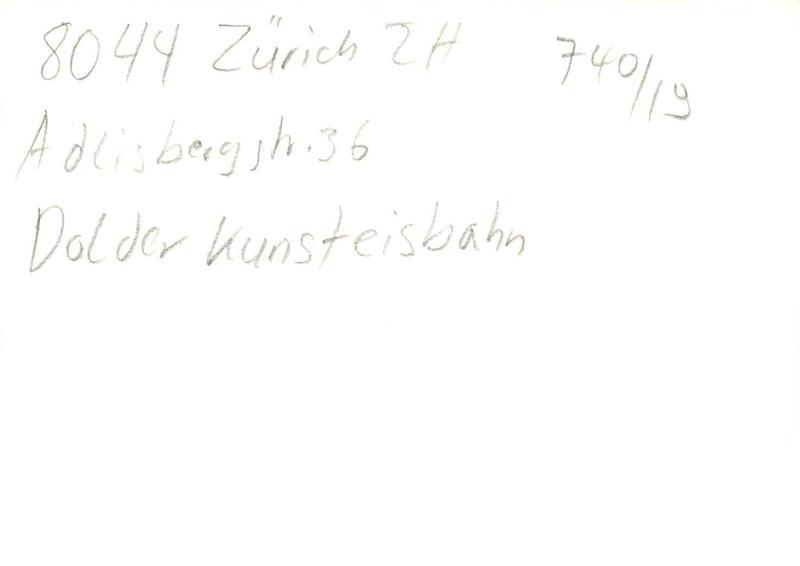 8044 Zürich ZH 740/19
Adlisbergstr. 36
Dolder Kunsteisbahn